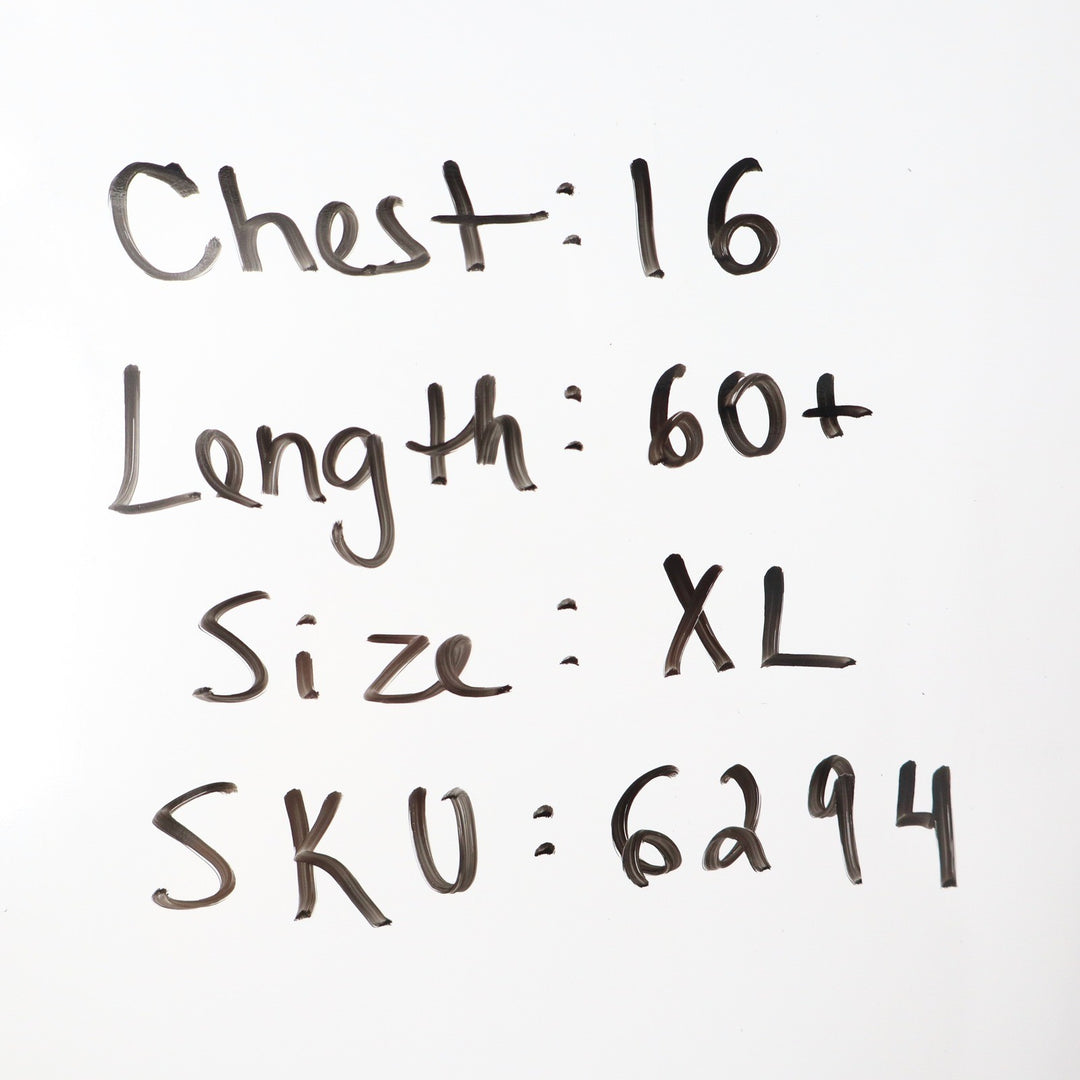 Chest: 16
Length: 60+
Size: XL
SKU: 6294